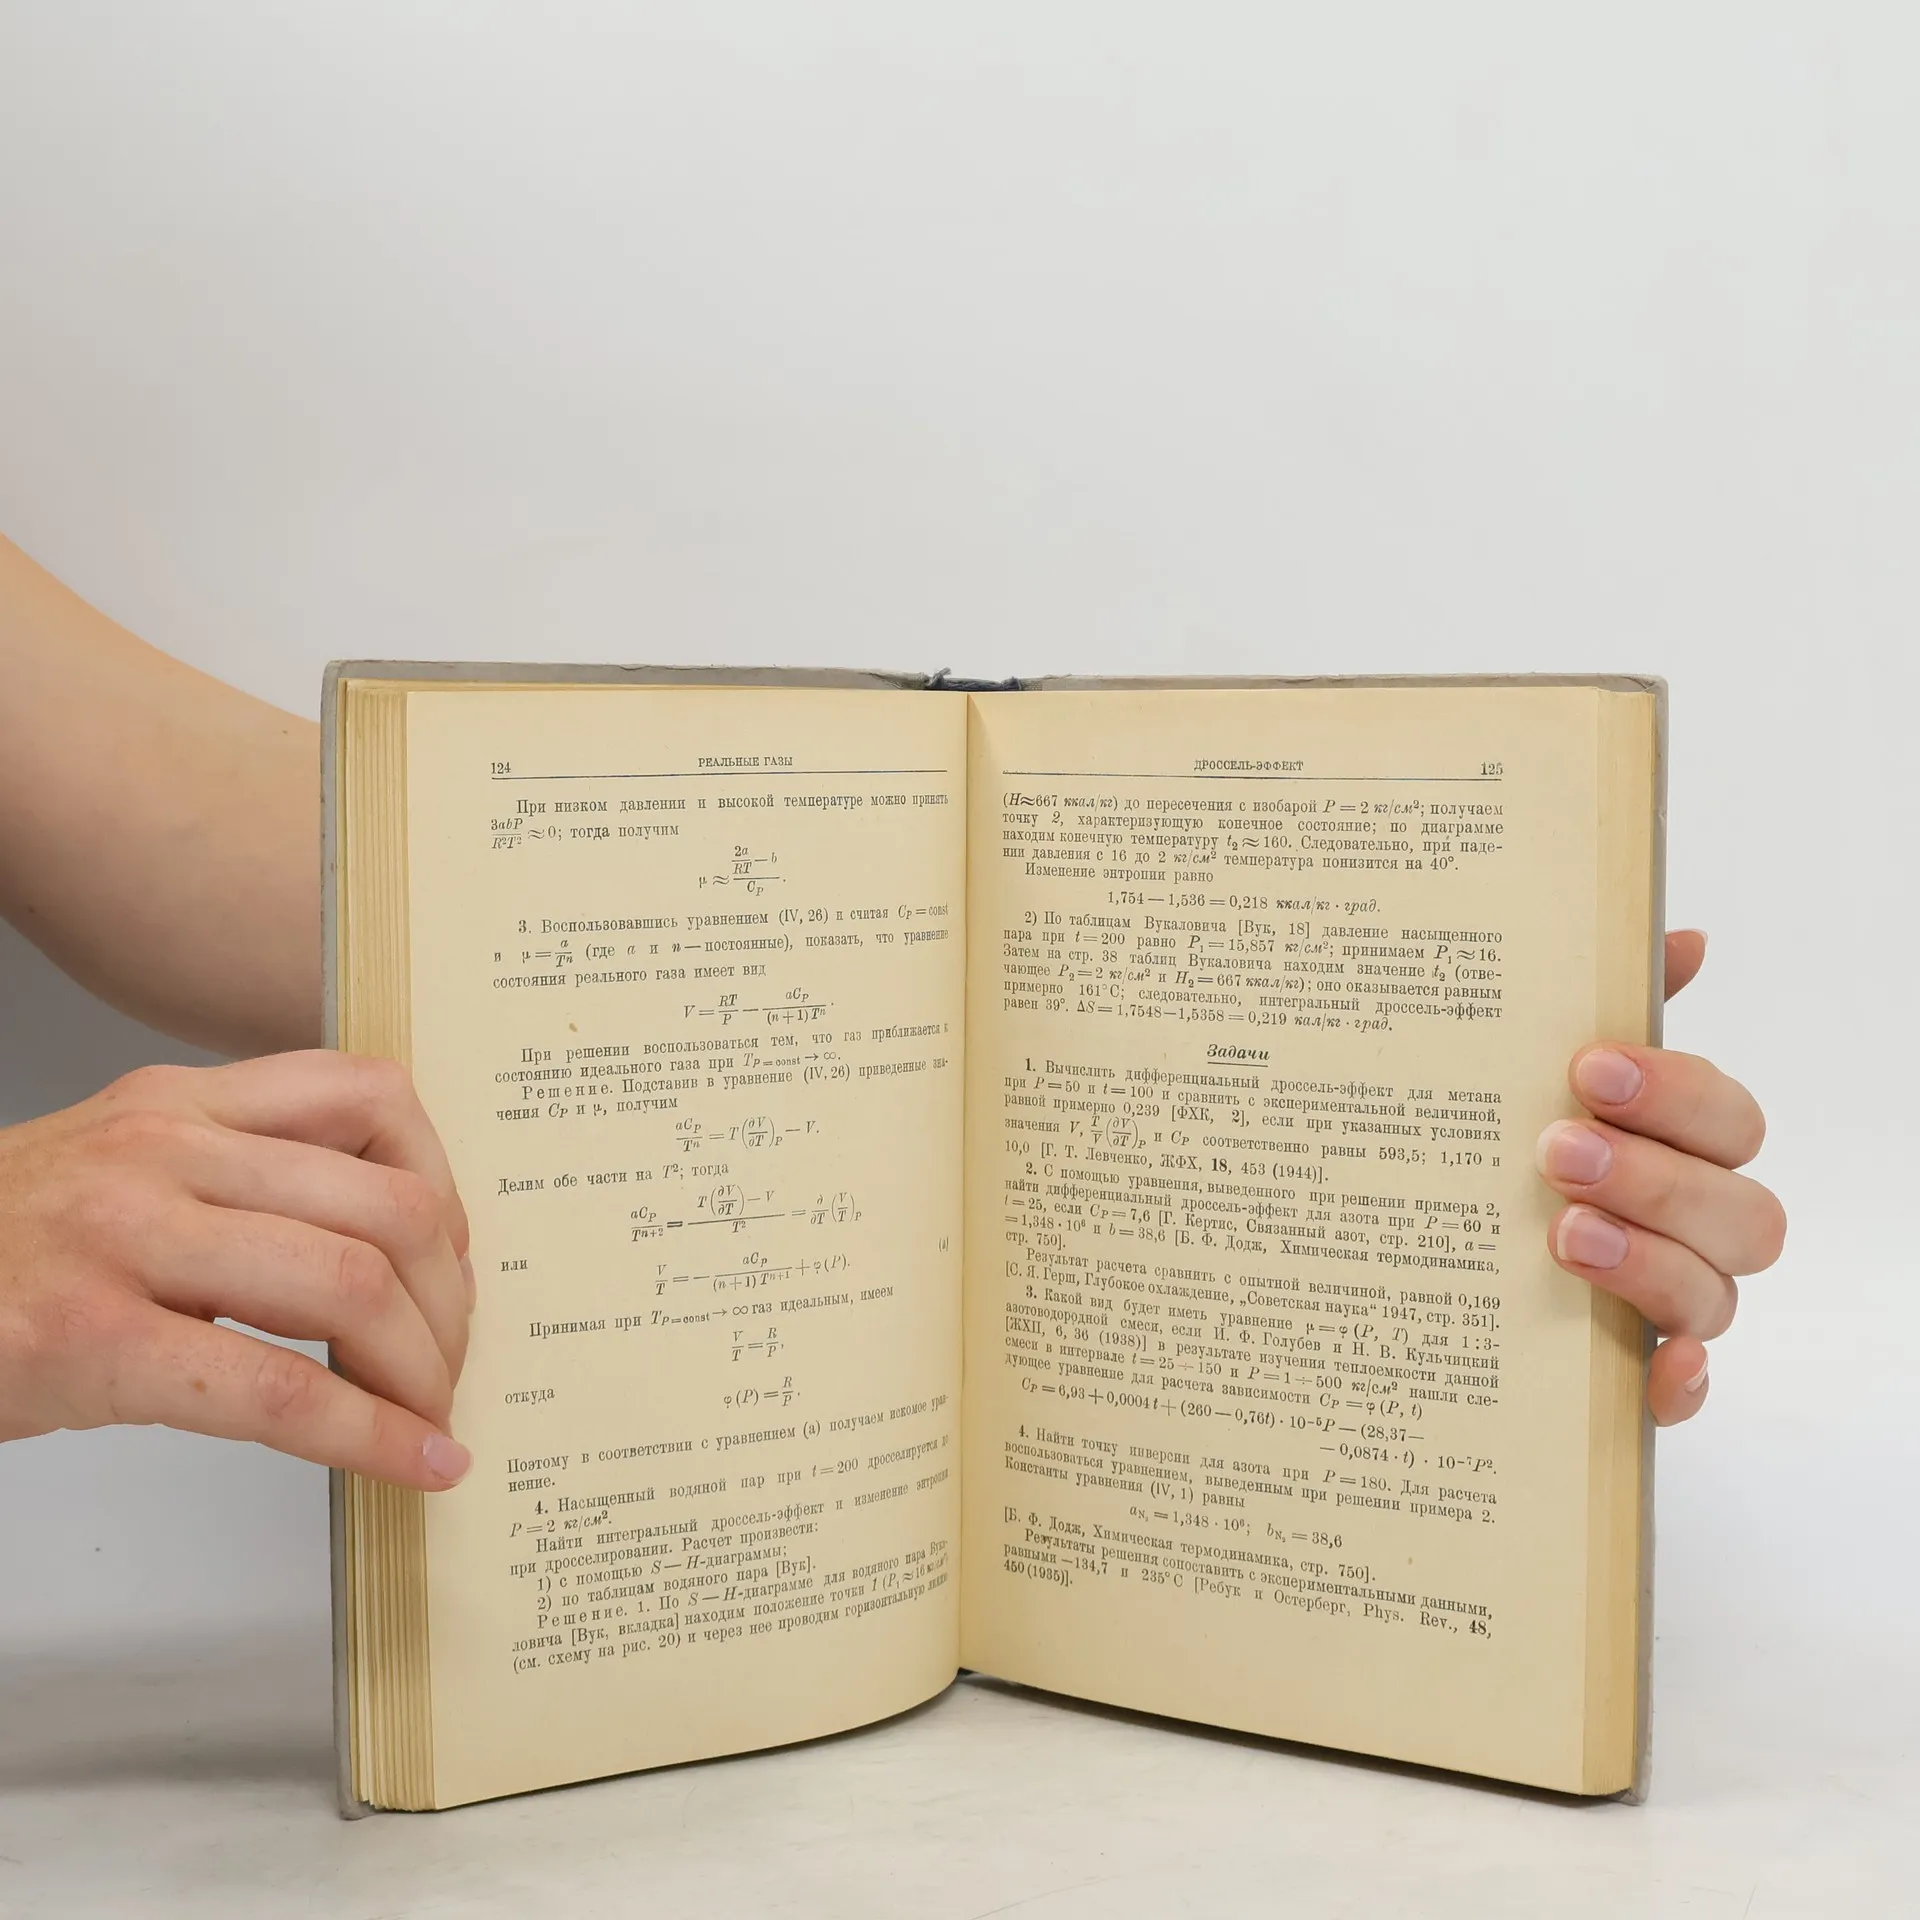 124 РЕАЛЬНЫЕ ГАЗЫ
При низком давлении и высокой температуре можно принять
3abP/R²T² ≈ 0; тогда получим
μ ≈ (2a/RT − b)/C_P.
3. Воспользовавшись уравнением (IV, 26) и считая C_P = const
и μ = a/Tⁿ (где a и n — постоянные), показать, что уравнение
состояния реального газа имеет вид
V = RT/P − aC_P/((n + 1) Tⁿ).
При решении воспользоваться тем, что газ приближается к
состоянию идеального газа при T_{P = const} → ∞.
Решение. Подставив в уравнение (IV, 26) приведенные зна-
чения C_P и μ, получим
aC_P/Tⁿ = T (∂V/∂T)_P − V.
Делим обе части на T²; тогда
aC_P/Tⁿ⁺² = (T (∂V/∂T) − V)/T² = ∂/∂T (V/T)_P
или
V/T = − aC_P/((n + 1) Tⁿ⁺¹) + φ (P). (а)
Принимая при T_{P = const} → ∞ газ идеальным, имеем
V/T = R/P,
откуда
φ (P) = R/P.
Поэтому в соответствии с уравнением (а) получаем искомое урав-
нение.
4. Насыщенный водяной пар при t = 200 дросселируется до
P = 2 кг/см².
Найти интегральный дроссель-эффект и изменение энтропии
при дросселировании. Расчет произвести:
1) с помощью S — H-диаграммы;
2) по таблицам водяного пара [Вук].
Решение. 1. По S — H-диаграмме для водяного пара Вука-
ловича [Вук, вкладка] находим положение точки 1 (P₁ ≈ 16 кг/см²)
(см. схему на рис. 20) и через нее проводим горизонтальную линию
ДРОССЕЛЬ-ЭФФЕКТ 125
(H≈667 ккал/кг) до пересечения с изобарой P = 2 кг/см²; получаем
точку 2, характеризующую конечное состояние; по диаграмме
находим конечную температуру t₂ ≈ 160. Следовательно, при паде-
нии давления с 16 до 2 кг/см² температура понизится на 40°.
Изменение энтропии равно
1,754 — 1,536 = 0,218 ккал/кг · град.
2) По таблицам Вукаловича [Вук, 18] давление насыщенного
пара при t = 200 равно P₁ = 15,857 кг/см²; принимаем P₁ ≈ 16.
Затем на стр. 38 таблиц Вукаловича находим значение t₂ (отве-
чающее P₂ = 2 кг/см² и H₂ = 667 ккал/кг); оно оказывается равным
примерно 161° C; следовательно, интегральный дроссель-эффект
равен 39°. ΔS = 1,7548—1,5358 = 0,219 кал/кг · град.
Задачи
1. Вычислить дифференциальный дроссель-эффект для метана
при P = 50 и t = 100 и сравнить с экспериментальной величиной,
равной примерно 0,239 [ФХК, 2], если при указанных условиях
значения V, T/V (∂V/∂T)_P и C_P соответственно равны 593,5; 1,170 и
10,0 [Г. Т. Левченко, ЖФХ, 18, 453 (1944)].
2. С помощью уравнения, выведенного при решении примера 2,
найти дифференциальный дроссель-эффект для азота при P = 60 и
t = 25, если C_P = 7,6 [Г. Кертис, Связанный азот, стр. 210], a =
= 1,348 · 10⁶ и b = 38,6 [Б. Ф. Додж, Химическая термодинамика,
стр. 750].
Результат расчета сравнить с опытной величиной, равной 0,169
[С. Я. Герш, Глубокое охлаждение, „Советская наука“ 1947, стр. 351].
3. Какой вид будет иметь уравнение μ = φ (P, T) для 1 : 3-
азотоводородной смеси, если И. Ф. Голубев и Н. В. Кульчицкий
[ЖХП, 6, 36 (1938)] в результате изучения теплоемкости данной
смеси в интервале t = 25 ÷ 150 и P = 1 ÷ 500 кг/см² нашли сле-
дующее уравнение для расчета зависимости C_P = φ (P, t)
C_P = 6,93 + 0,0004 t + (260 — 0,76t) · 10⁻⁵P — (28,37—
— 0,0874 · t) · 10⁻⁷P².
4. Найти точку инверсии для азота при P = 180. Для расчета
воспользоваться уравнением, выведенным при решении примера 2.
Константы уравнения (IV, 1) равны
a_{N₂} = 1,348 · 10⁶; b_{N₂} = 38,6
[Б. Ф. Додж, Химическая термодинамика, стр. 750].
Результаты решения сопоставить с экспериментальными данными,
равными —134,7 и 235° C [Ребук и Остерберг, Phys. Rev., 48,
450 (1935)].